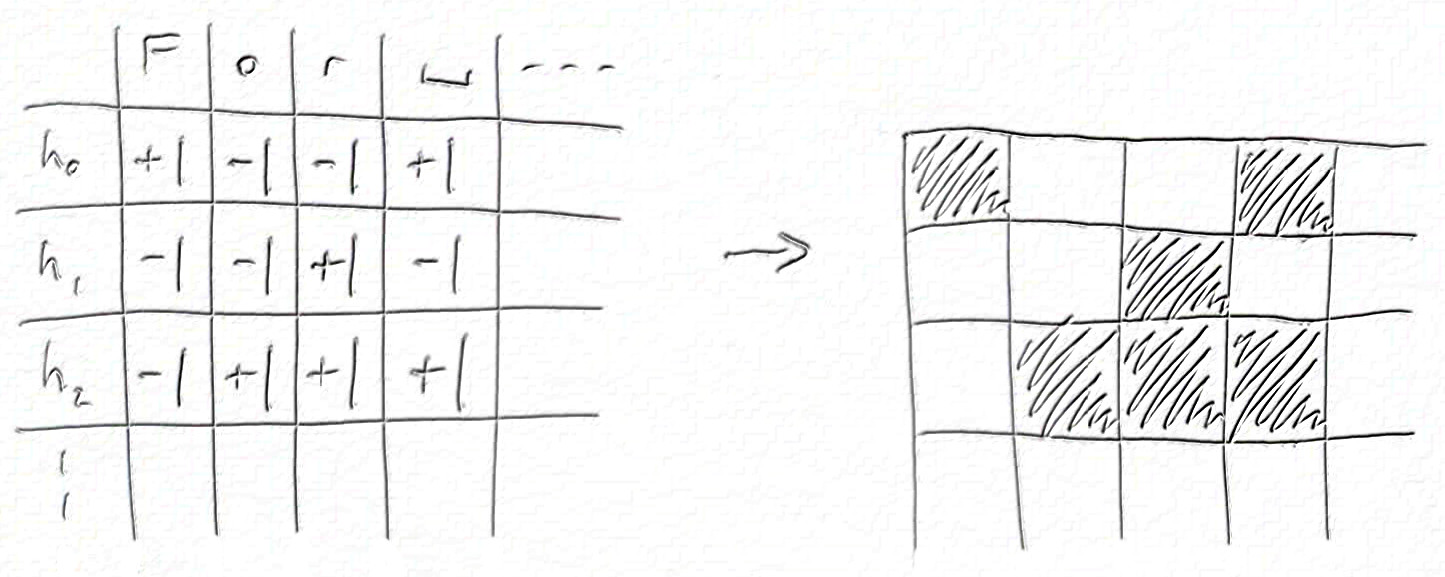 F o r ⎵ - - -
h₀ +1 -1 -1 +1
h₁ -1 -1 +1 -1
h₂ -1 +1 +1 +1